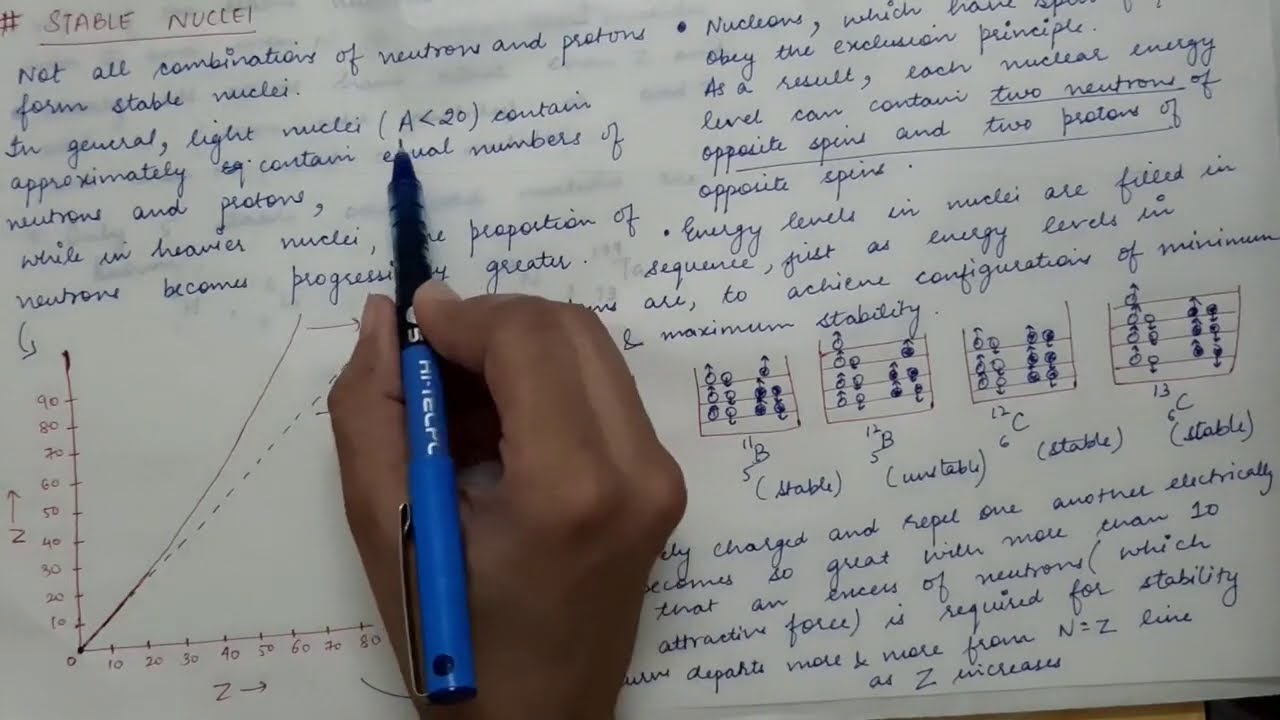 # STABLE NUCLEI
Not all combinations of neutrons and protons
form stable nuclei.
In general, light nuclei (A<20) contain
approximately contain equal numbers of
neutrons and protons,
while in heavier nuclei, proportion of
neutrons becomes greater.
90
80
70
60
50
40
30
20
10
0
Z
10 20 30 40 50 60 70 80
Z →
• Nucleons, which have
obey the exclusion principle.
As a result, each nuclear energy
level can contain two neutrons of
opposite spins and two protons of
opposite spins.
• Energy levels in nuclei are filled in
sequence, just as energy levels in
are, to achieve configurations of minimum
& maximum stability.
11 5 B
(stable)
12 5 B
(unstable)
12 6 C
(stable)
13 6 C
(stable)
charged and repel one another electrically
so great with more than 10
that an excess of neutrons (which
attractive force) is required for stability
departs more & more from N=Z line
as Z increases